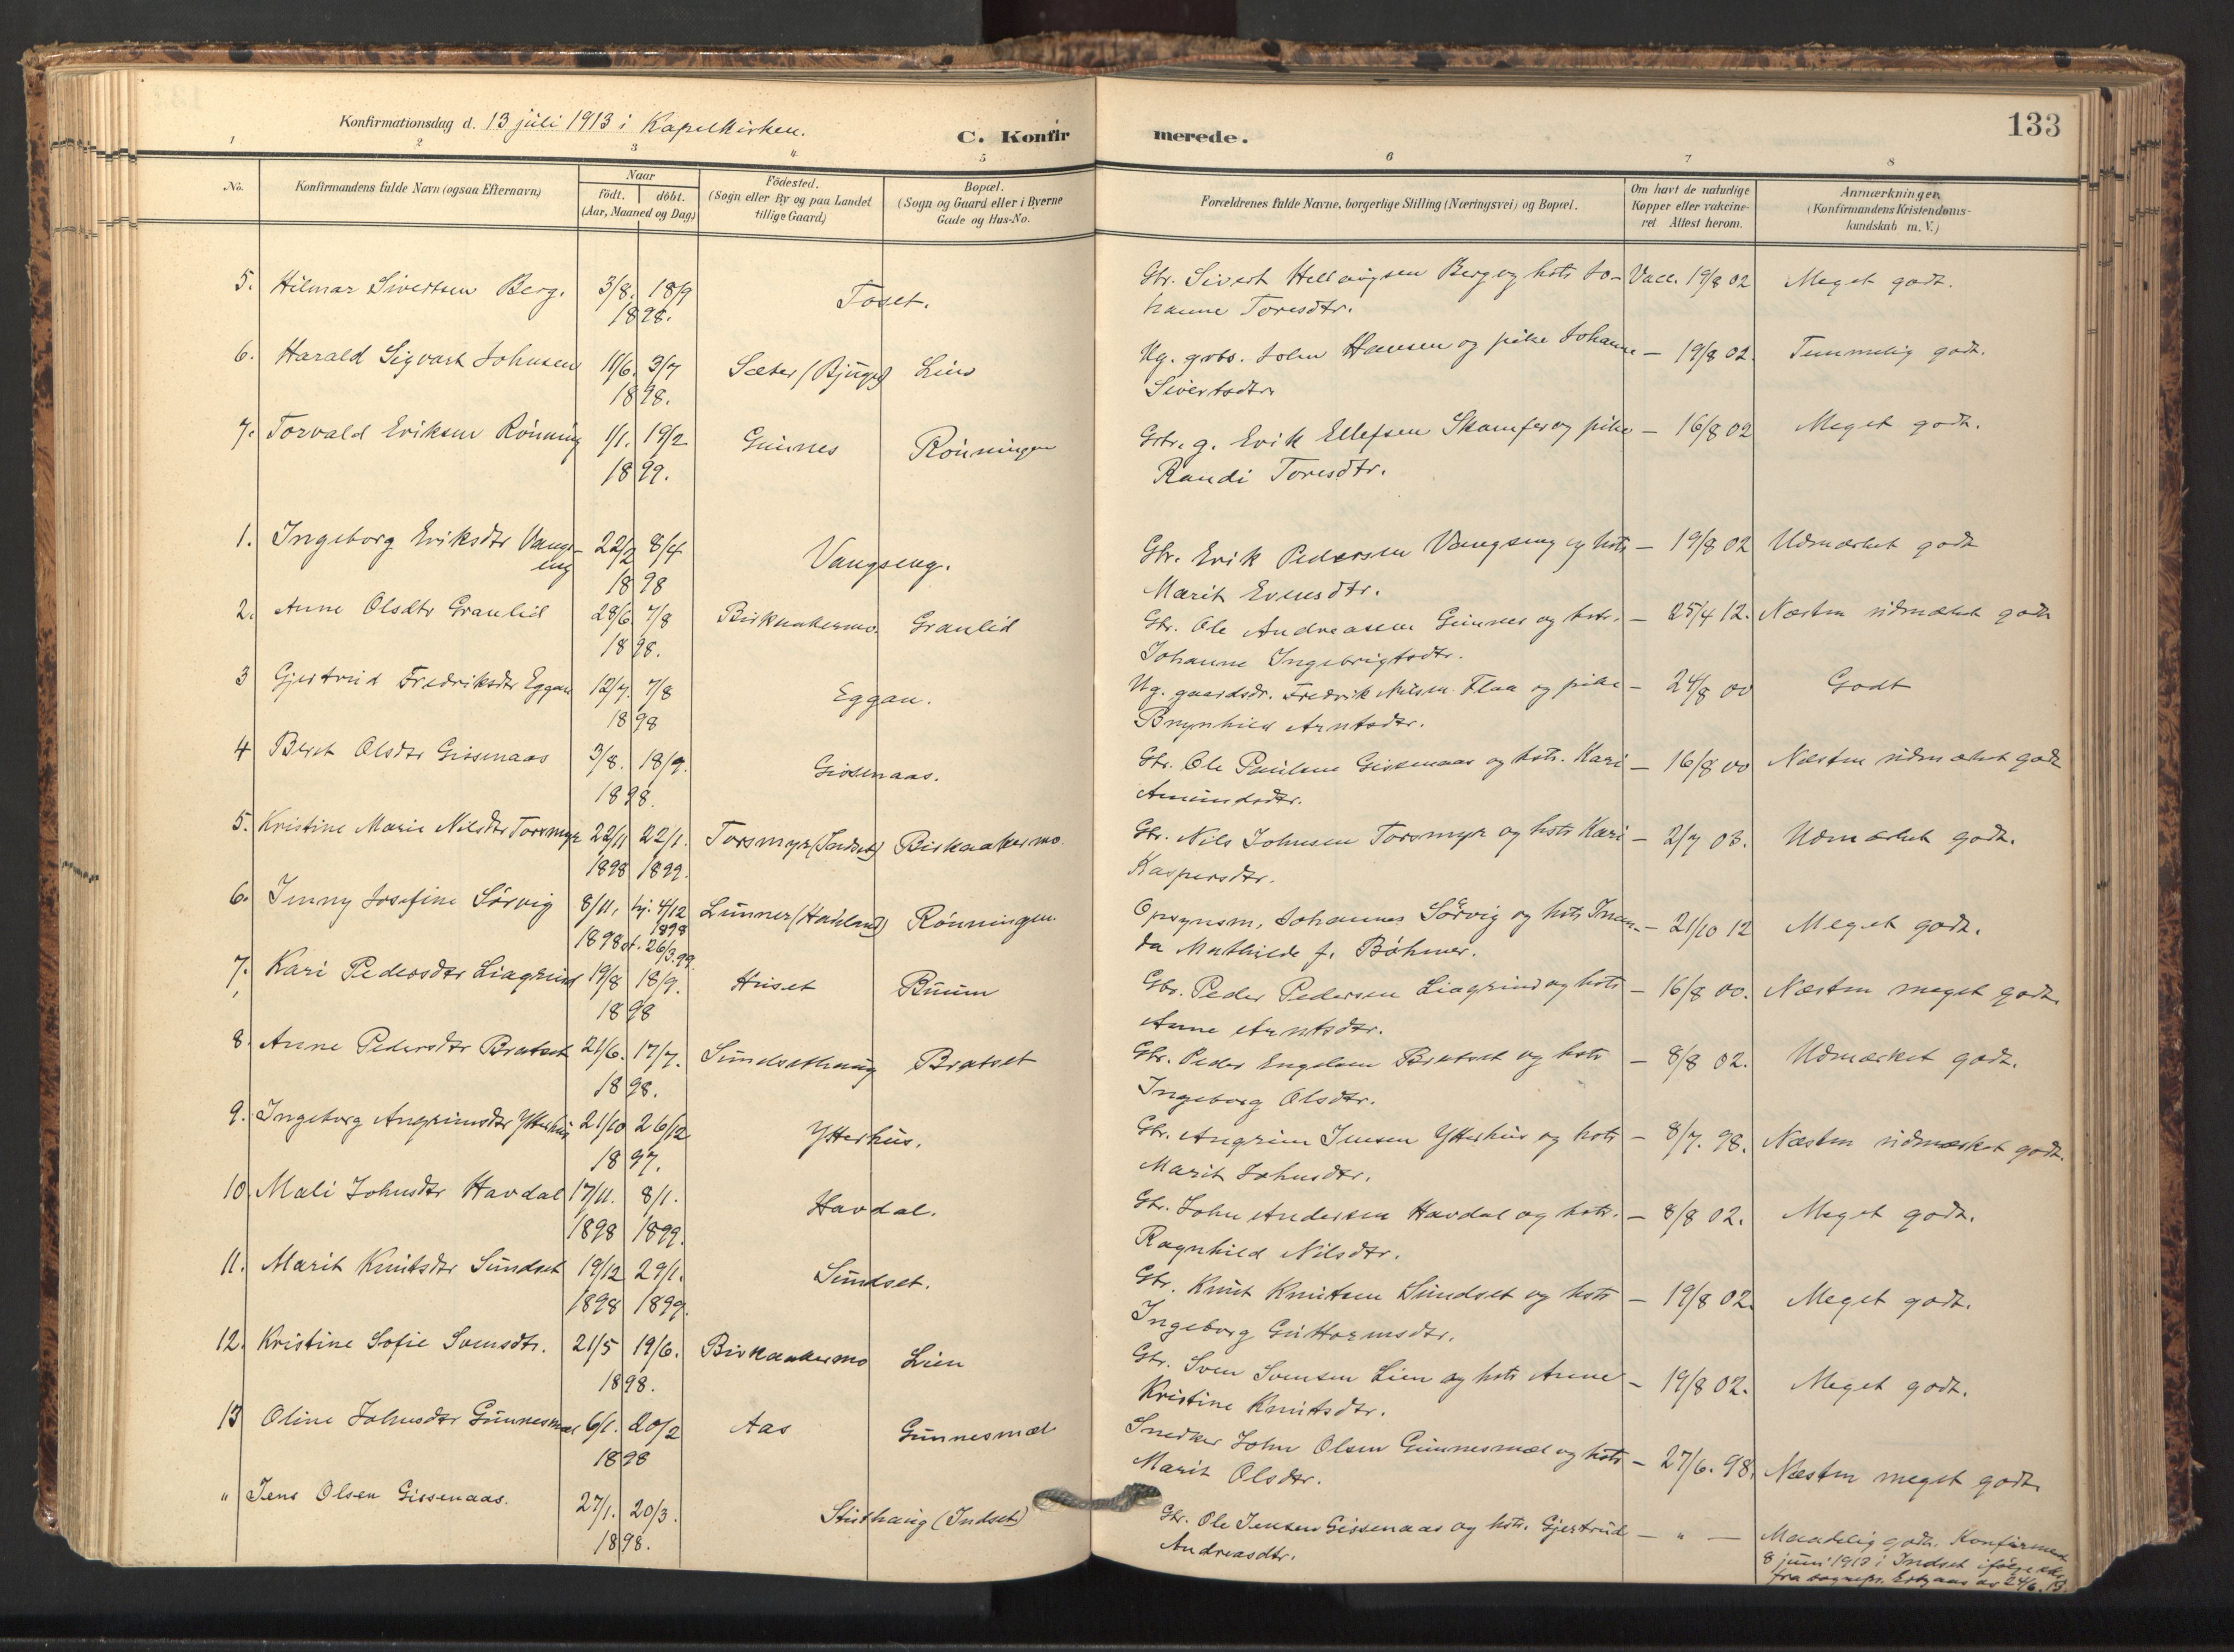 133
Konfirmationsdag d. 13 juli 1913 i Kapelkirken.
C. Konfir merede.
1 2 3 4 5 6 7 8
No.
Konfirmandens fulde Navn (ogsaa Efternavn)
Naar
födt. döbt.
(Aar, Maaned og Dag)
Födested.
(Sogn eller By og paa Landet
tillige Gaard)
Bopæl.
(Sogn og Gaard eller i Byerne
Gade og Hus-No.
Forældrenes fulde Navne, borgerlige Stilling (Næringsvei) og Bopæl.
Om havt de naturlige
Kopper eller vakcine-
ret Attest herom.
Anmærkninger.
(Konfirmandens Kristendoms-
kundskab m. V.)
5. Hilmar Sivertsen Berg. 3/8. 18/9 Toset. Gbr. Sivert Berg og hstr Jo- Vacc. 19/8 02 Meget godt.
1898. hanne Toresdtr.
6. Harald Sigvart Johnsen 11/6. 3/7 Sæter (Bjugn) Lien Ug. John Hansen og pike Johanne — 19/8 02. Temmelig godt.
1898. Sivertsdtr
7. Torvald Eriksen Rönning 1/1. 19/2 Gunnes Rönningen g. Erik Ellefsen Skamfer og pike — 16/8 02 Meget godt.
1899. Randi Toresdtr.
1. Ingeborg Eriksdtr Vangs- 22/2 8/4 Vangseng. Gbr. Erik Pedersen Vangseng og hstr — 19/8 02 Udmærket godt
eng 1898 Marit Evensdtr.
2. Anne Olsdtr Granlid 28/6. 7/8 Birkaakermo. Granlid Gbr. Ole Andreasen Gunnes og hstr. — 25/4 12. Næsten udmærket godt
1898. Johanne Ingebrigtsdtr.
3 Gjertrud Fredriksdtr Eggan 12/7. 7/8 Eggan. Ug. gaardsdr. Fredrik Nilsen Flaa og pike — 24/8 00 Godt
1898 Brynhild Arntsdtr.
4 Berit Olsdtr Gissenaas 3/8. 18/9. Gissenaas. Gbr. Ole Paulsen Gissenaas og hstr. Kari — 16/8 00 Næsten udmærket godt
1898. Amundsdtr.
5. Kristine Marie Nilsdtr Torsmyr 22/11 22/1. Torsmyr (Indset) Birkaakermo. Gbr. Nils Johnsen Torsmyr og hstr Kari — 2/7 03. Udmærket godt.
1898 1899. Kaspersdtr.
6. Jenny Josefine Sörvig 8/11, hj. 4/12 Lunner (Hadeland) Rönningen. Opsynsm. Johannes Sörvig og hstr — 21/10 12 Meget godt.
1898
1898 st. 26/3.99. da Mathilde f. Böhmer.
7. Kari Pedersdtr Liagrind 19/8 18/9. Huset Buum Gbr. Peder Pedersen Liagrind og hstr — 16/8 00. Næsten meget godt.
1898 Anne Arntsdtr.
8. Anne Pedersdtr Bratset 21/6. 17/7. Sundsethaug Bratset Gbr. Peder Engelsen Bratset og hstr — 8/8 02. Udmærket godt.
1898. Ingeborg Olsdtr.
9. Ingeborg Angrimsdtr Ytterhus 21/10 26/12 Ytterhus. Gbr. Angrim Jensen Ytterhus og hstr — 8/7. 98. Næsten udmærket godt.
1897. Marit Johnsdtr.
10. Mali Johnsdtr Havdal 17/11. 8/1. Havdal. Gbr. John Andersen Havdal og hstr. — 8/8 02. Meget godt.
1898 1899. Ragnhild Nilsdtr.
11. Marit Knutsdtr Sundset 19/12 29/1. Sundset. Gbr. Knut Knutsen Sundset og hstr — 19/8 02. Meget godt.
1898 1899. Ingeborg Guttormsdtr.
12. Kristine Sofie Svensdtr. 21/5 19/6. Birkaakermo Lien Gbr. Sven Svensen Lien og hstr Anne — 19/8 02. Meget godt.
1898. Kristine Knutsdtr.
13 Oline Johnsdtr Gunnesmæl 6/1. 20/2 Aas Gunnesmæl Snedker John Olsen Gunnesmæl og hstr — 27/6. 98. Næsten meget godt.
1898 Marit Olsdtr.
" Jens Olsen Gissenaas. 27/1. 20/3. (Indset) Gbr. Ole Jensen Gissenaas og hstr. Gjertrud — " — Maadelig godt. Konfirmert
1898. Andreasdtr. 8 juni 1913 i Indset ifölge
fra sognepr. av 24/6. 13.